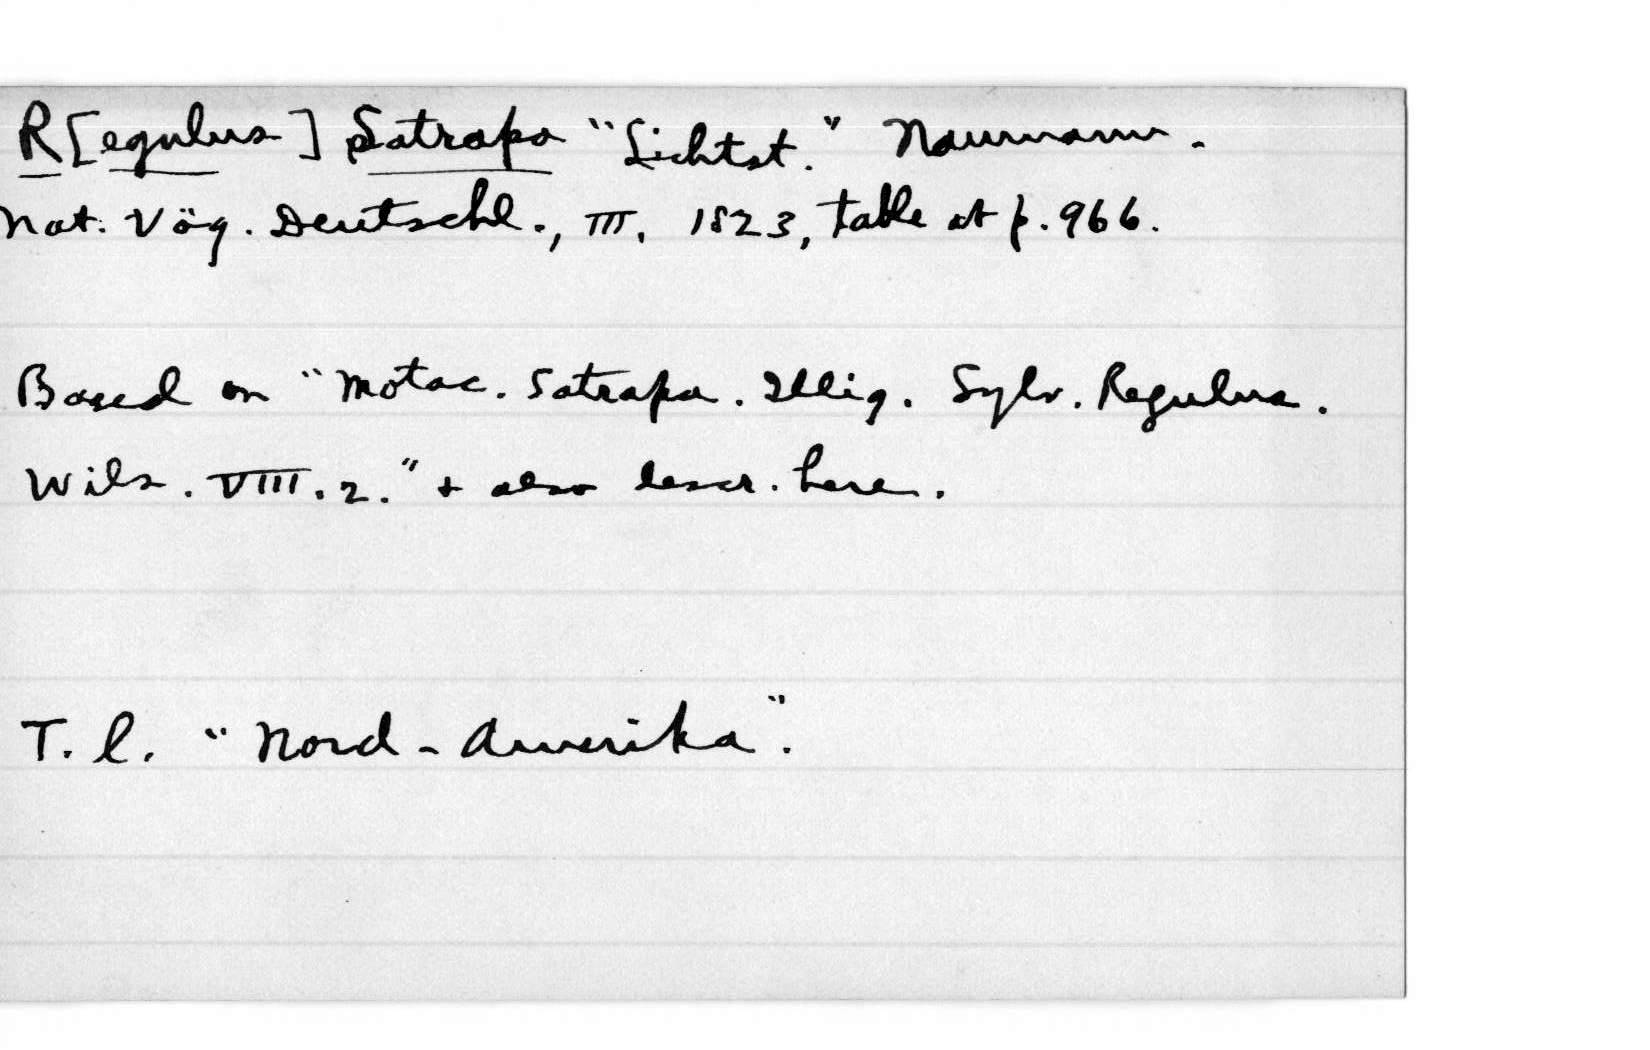 R[egulus] Satrapa "Lichtst." Naumann.
Nat. Vög. Deutschl., III, 1823, table at p. 966.
Based on "Motac. Satrapa. Illig. Sylv. Regulus.
Wils. VIII. 2." + also descr. here.
T. l. "Nord-Amerika".